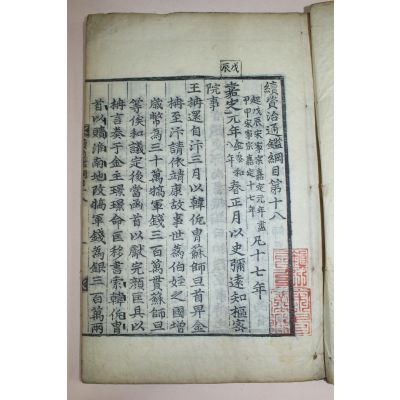 戊辰
續資治通鑑綱目第十八
起戊辰宋寧宗嘉定元年盡
甲申宋寧宗嘉定十七年
凡十七年
嘉定元年
金泰和
八年
春正月以史彌遠知樞密
院事
王柟還自汴三月以韓侂冑蘇師旦首畀金
柟至汴請依靖康故事世為伯姪之國增
歲幣為三十萬犒軍錢三百萬貫蘇師旦
等俟和議定後當函首以獻完顏匡具以
柟言奏于金主璟璟命匡移書索韓侂冑
首以贖淮南地改犒軍錢為銀三百萬兩